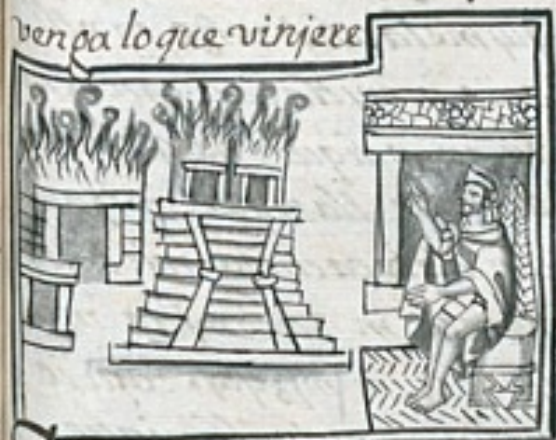 venga lo que viniere